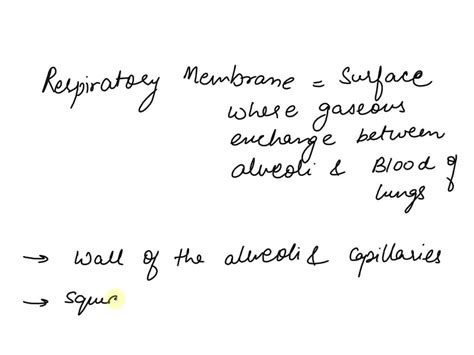 Respiratory Membrane = Surface
where gaseous
exchange between
alveoli & Blood of
lungs
→ Wall of the alveoli & Capillaries
→ squa